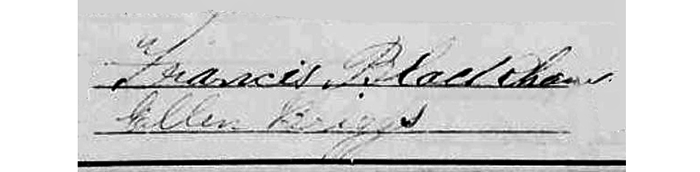 Francis Blackshaw
Ellen Briggs